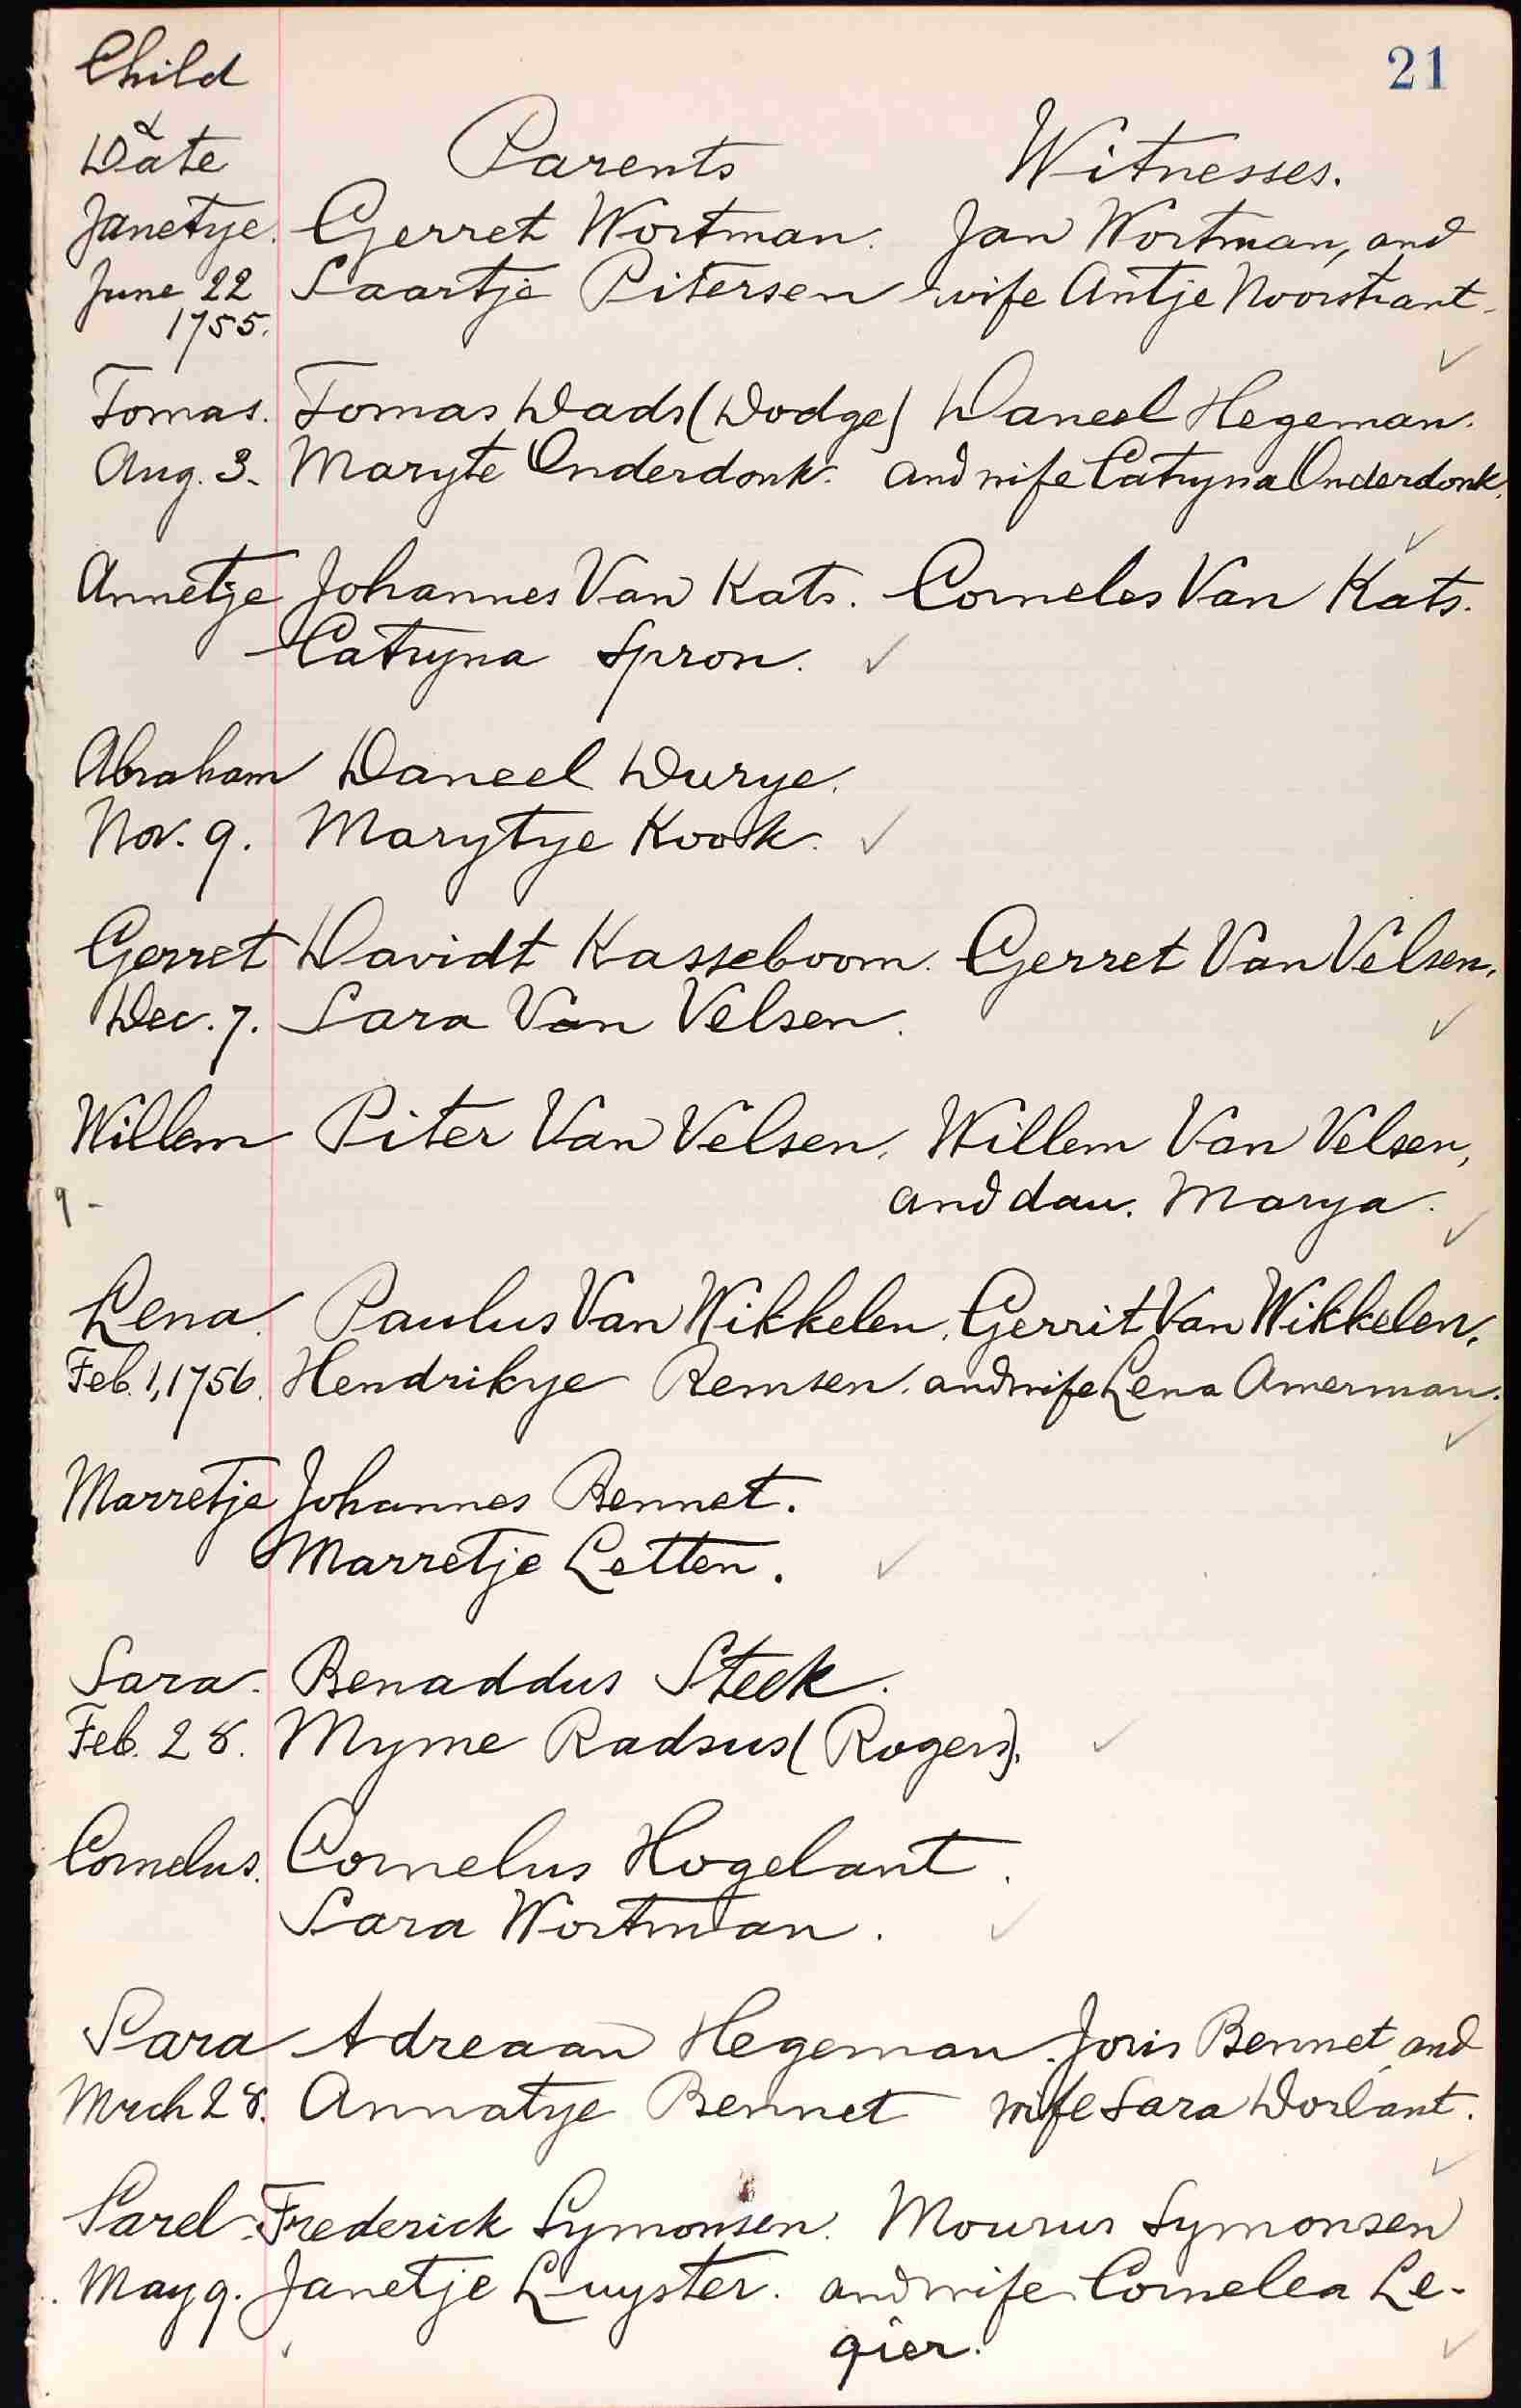 Child 21
&
Date Parents Witnesses.
Janetye. Gerret Wortman. Jan Wortman, and
June 22 Saartje Pitersen wife Antje Noorstrant.
1755.
Tomas. Tomas Dads (Dodge) Daneel Hegeman.
Aug. 3. Maryte Onderdonk. and wife Catryna Onderdonk.
Annetje Johannes Van Kats. Corneles Van Kats.
Catryna Spron.
Abraham Daneel Durye.
Nov. 9. Marytye Kook.
Gerret Davidt Kasseboom. Gerret Van Velsen.
Dec. 7. Sara Van Velsen.
Willem Piter Van Velsen. Willem Van Velsen,
9 - and dau. Marya.
Lena. Paulus Van Wikkelen. Gerrit Van Wikkelen.
Feb. 1, 1756. Hendrikye Remsen. and wife Lena Amerman.
Marretje Johannes Bennet.
Marretje Letten.
Sara. Benaddus Steek.
Feb. 28. Myme Radsus (Rogers).
Cornelus. Cornelus Hogelant.
Sara Wortman.
Sara Adreaan Hegeman. Joris Bennet, and
Mrch 28. Annatye Bennet wife Sara Dorlant.
Sarel. Frederick Symonsen. Mourus Symonsen
May 9. Janetje Luyster. and wife Cornelea Le-
gier.